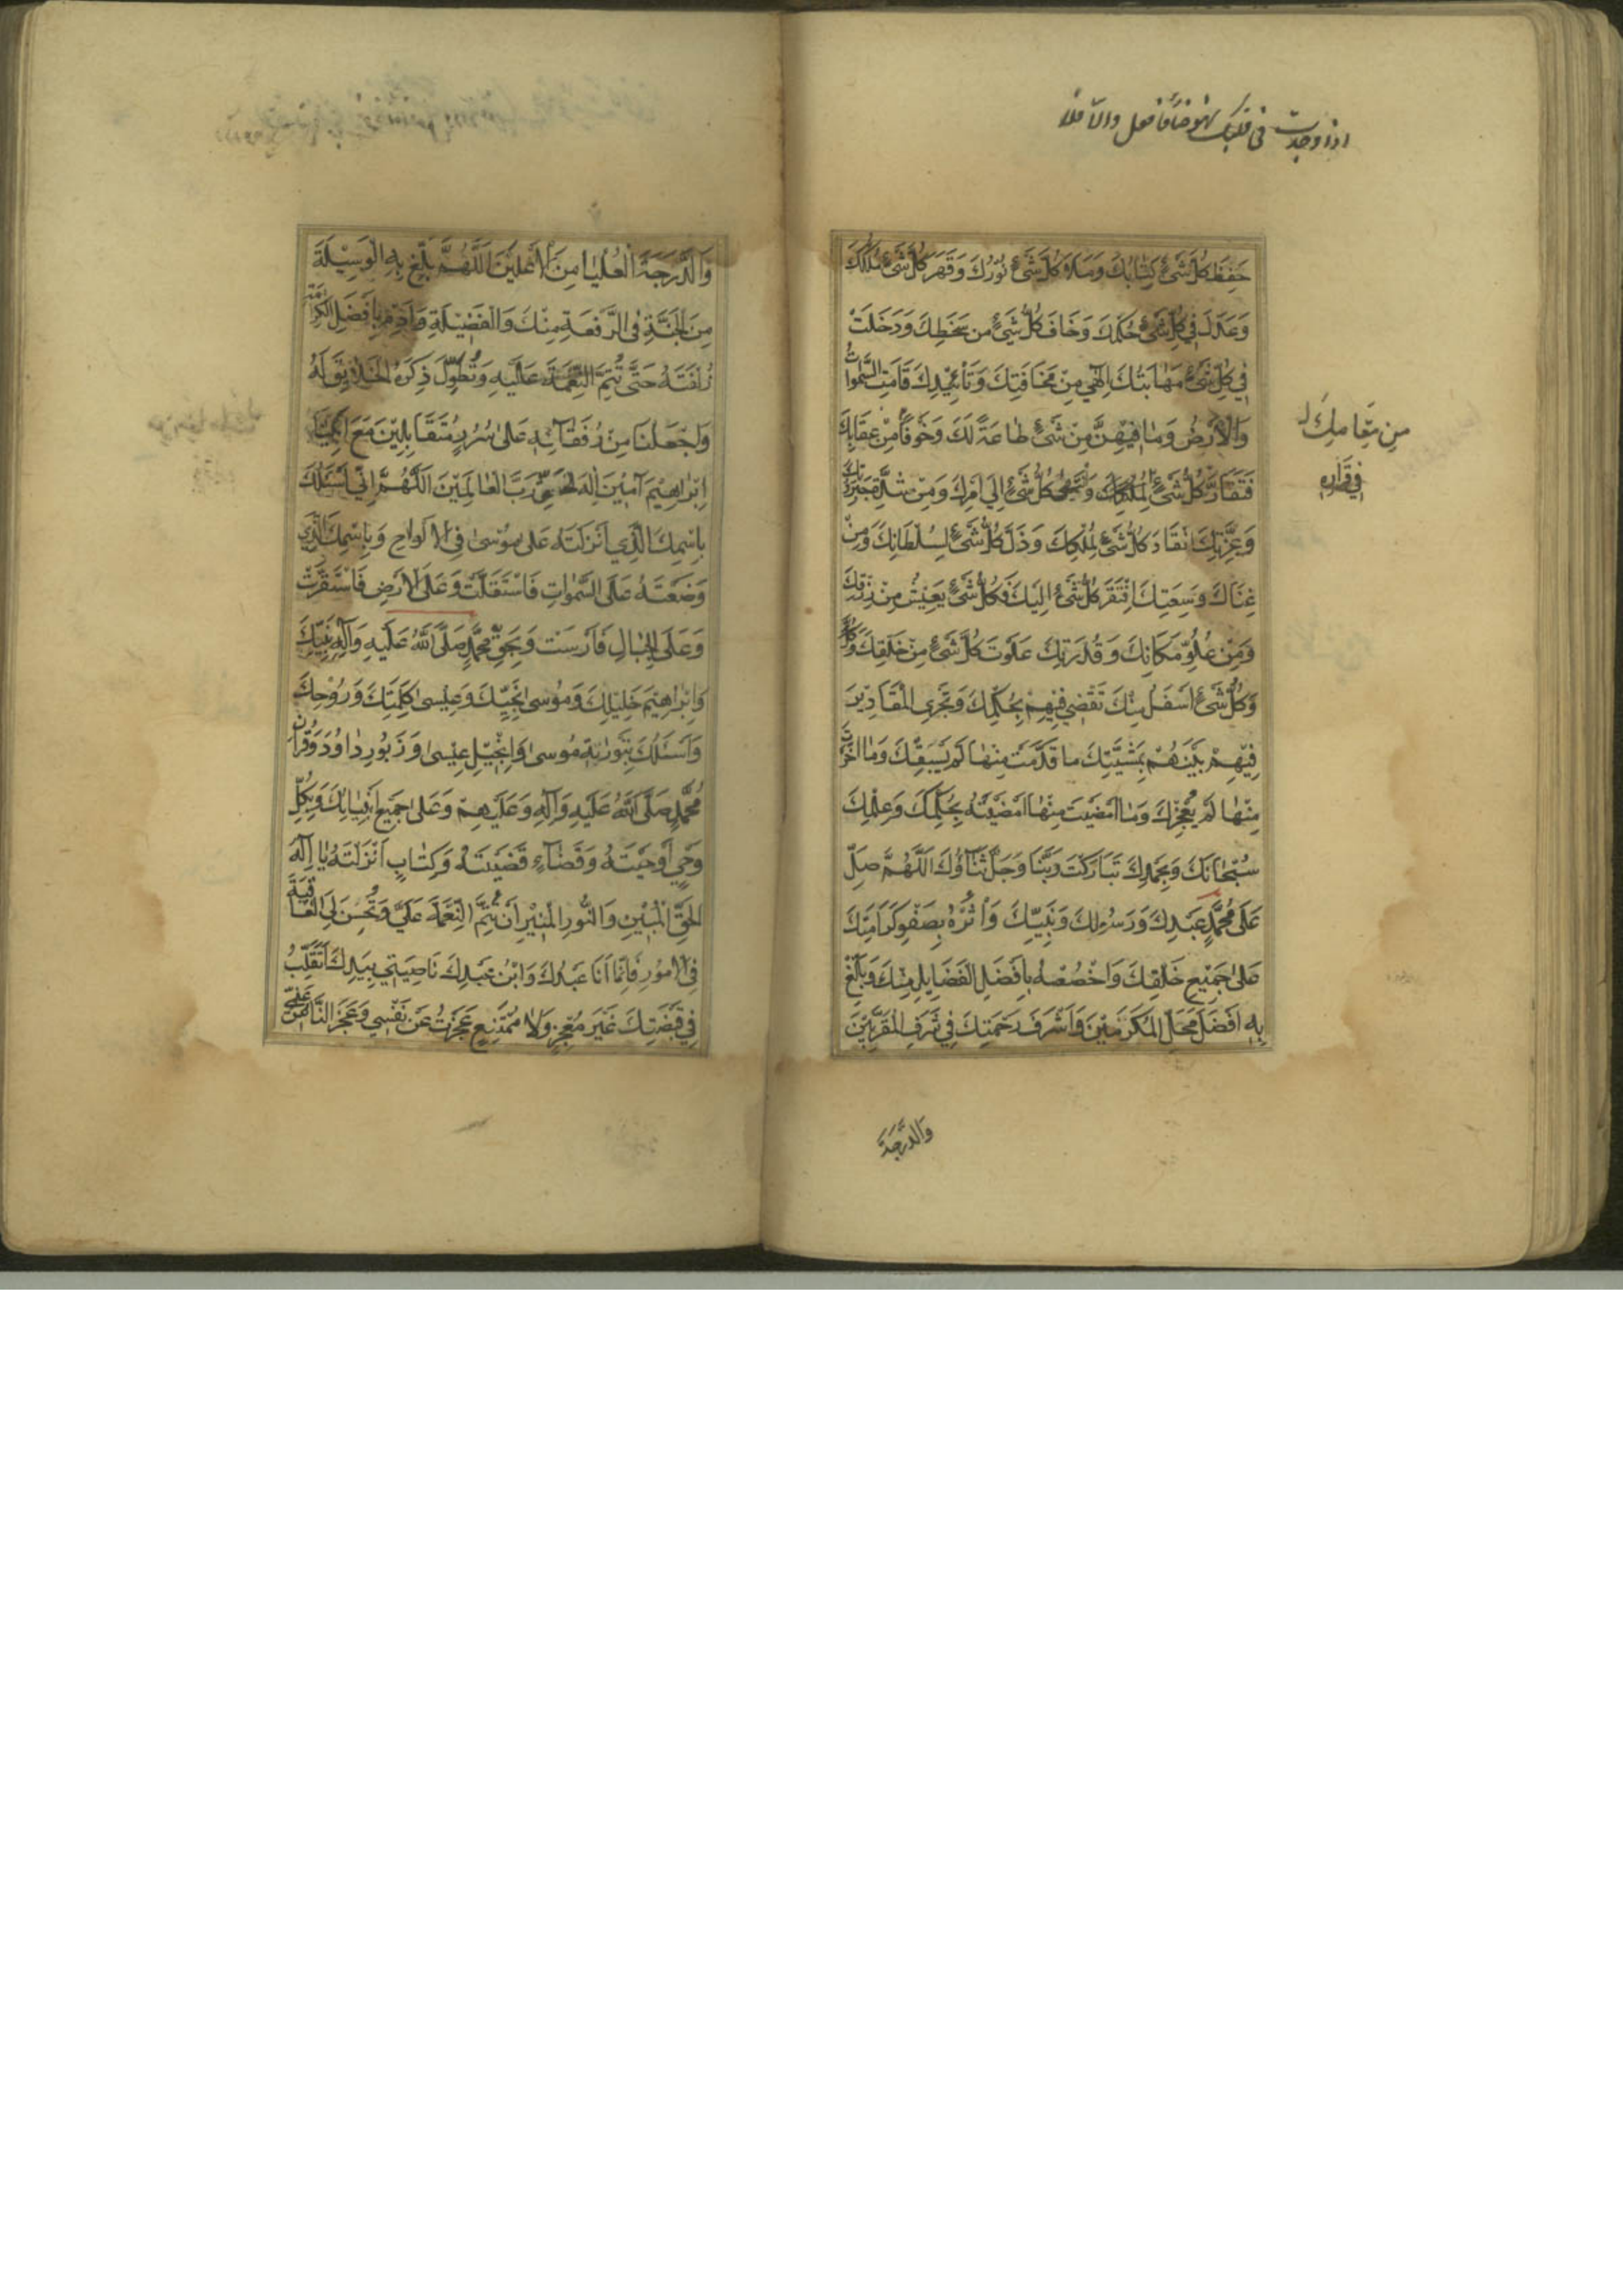 اذا وجدت في قلبك فافعل والا فلا
حَفِظَ كُلَّ شَیْءٍ كِتٰابُكَ وَمَلَاَ كُلَّ شَیْءٍ نُوْرُكَ وَقَهَرَ كُلَّ شَیْءٍ مُلْكُكَ
وَعَدَلَ فِي كُلِّ شَیْءٍ حُكْمُكَ وَخَافَ كُلُّ شَیْءٍ مِن سَخَطِكَ وَدَخَلَتْ
فِي كُلِّ شَیْءٍ مَهٰابَتُكَ اِلٰهِي مِنْ مَخَافَتِكَ وَتَأْيِيْدِكَ قَامَتِ السَّمٰوٰاتُ
وَالْاَرْضُ وَمٰا فِيْهِنَّ مِنْ شَیْءٍ طٰاعَةً لَكَ وَخَوْفًا مِنْ عِقَابِكَ
من مقامك
فَتَقَارَّ كُلُّ شَیْءٍ كُلُّ شَیْءٍ اِلٰي اَمْرِكَ وَمِنْ شِدَّةِ جَبَرُوتِكَ
في قراره
وَعِزَّتِكَ انْقَادَ كُلُّ شَیْءٍ لِمُلْكِكَ وَذَلَّ كُلُّ شَیْءٍ لِسُلْطَانِكَ وَمِنْ
غِنَاكَ وَسَعَتِكَ افْتَقَرَ كُلُّ شَیْءٍ اِلَيْكَ فَكُلُّ شَیْءٍ يَعِيْشُ مِنْ رِزْقِكَ
وَمِنْ عُلُوِّ مَكَانِكَ وَقُدْرَتِكَ عَلَوْتَ كُلَّ شَیْءٍ مِنْ خَلْقِكَ
وَكُلُّ شَیْءٍ اَسْفَلُ مِنْكَ تَقْضِي فِيْهِمْ بِحُكْمِكَ وَتَجْرِي الْمَقَادِيْرَ
فِيْهِمْ بَيْنَهُمْ بِمَشِيَّتِكَ مٰا قَدَّمْتَ مِنْهٰا لَمْ يَسْبِقْكَ وَمٰا اَخَّرْتَ
مِنْهٰا لَمْ يُعْجِزْكَ وَمٰا اَمْضَيْتَ مِنْهٰا اَمْضَيْتَهُ بِحُكْمِكَ وَعِلْمِكَ
سُبْحٰانَكَ وَبِحَمْدِكَ تَبَارَكْتَ رَبَّنَا وَجَلَّ ثَنَاؤُكَ اَللّٰهُمَّ صَلِّ
عَلٰی مُحَمَّدٍ عَبْدِكَ وَرَسُولِكَ وَنَبِيِّكَ وَأْثُرْهُ بِصَفْوِ كَرَامَتِكَ
عَلٰی جَمِيْعِ خَلْقِكَ وَاخْصُصْهُ بِاَفْضَلِ الْفَضَايِلِ مِنْكَ وَبَلِّغْ
بِهِ اَفْضَلَ مَحَلِّ الْمُكَرَّمِيْنَ وَاَشْرَفَ رَحْمَتِكَ فِي شَرَفِ الْمُقَرَّبِيْنَ
وَالدَّرَجَةَ
وَالدَّرَجَةَ الْعُلْيٰا مِنَ الْاَعْلَيْنَ اَللّٰهُمَّ بَلِّغْ بِهِ الْوَسِيْلَةَ
مِنَ الْجَنَّةِ فِي الرَّفْعَةِ مِنْكَ وَالْفَضِيْلَةِ وَاَدِمْ بِاَفْضَلِ الْكَرَامَةِ
زُلْفَتَهُ حَتّٰی تُتِمَّ النِّعْمَةَ عَلَيْهِ وَتُطَوِّلَ ذِكْرَ الْخَلَائِقِ لَهُ
وَاجْعَلْنَا مِنْ رُفَقَآئِهِ عَلٰی سُرُرٍ مُتَقَابِلِيْنَ مَعَ اَبِيْنَا
اِبْرٰاهِيْمَ آمِيْنَ اِلٰهَ الْحَقِّ رَبَّ الْعَالَمِيْنَ اَللّٰهُمَّ اِنِّي اَسْئَلُكَ
بِاسْمِكَ الَّذِي اَنْزَلْتَهُ عَلٰی مُوْسٰی فِي الْاَلْوَاحِ وَبِاسْمِكَ الَّذِي
وَضَعْتَهُ عَلَی السَّمٰوٰاتِ فَاسْتَقَلَّتْ وَعَلَی الْاَرْضِ فَاسْتَقَرَّتْ
وَعَلَی الْجِبَالِ فَاَرْسَتْ وَبِحَقِّ مُحَمَّدٍ صَلَّی اللّٰهُ عَلَيْهِ وَآلِهِ نَبِيِّكَ
وَاِبْرٰاهِيْمَ خَلِيْلِكَ وَمُوْسٰی نَجِيِّكَ وَعِيْسٰی كَلِمَتِكَ وَرُوْحِكَ
وَاَسْئَلُكَ بِتَوْرٰيةِ مُوسٰی وَاِنْجِيْلِ عِيْسٰی وَزَبُورِ دٰاوُدَ وَقُرْآنِ
مُحَمَّدٍ صَلَّی اللّٰهُ عَلَيْهِ وَآلِهِ وَعَلَيْهِمْ وَعَلٰی جَمِيْعِ اَنْبِيَائِكَ وَبِكُلِّ
وَحْيٍ اَوْحَيْتَهُ وَقَضَآءٍ قَضَيْتَهُ وَكِتٰابٍ اَنْزَلْتَهُ يٰا اِلٰهَ
الْحَقِّ الْمُبِيْنِ وَالنُّورِ الْمُنِيْرِ اَنْ تُتِمَّ النِّعْمَةَ عَلَيَّ وَتُحْسِنَ لِيَ الْعَاقِبَةَ
فِي الْاُمُوْرِ فَاِنَّمَا اَنَا عَبْدُكَ وَابْنُ عَبْدِكَ نَاصِيَتِي بِيَدِكَ اَتَقَلَّبُ
فِي قَبْضَتِكَ غَيْرَ مُعْجِزٍ وَلَا مُمْتَنِعٍ عَجَزْتُ عَنْ نَفْسِي وَعَجَزَ النَّاسُ عَنِّي